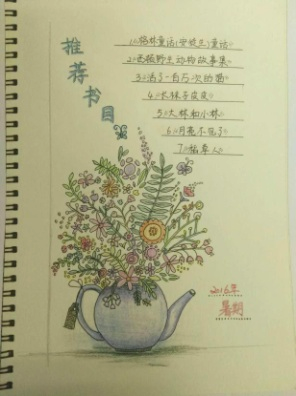 推荐书目
1、格林童话(安徒生)童话
2、西顿野生动物故事集
3、活了一百万次的猫
4、长袜子皮皮
5、大林和小林
6、月亮不见了
7、稻草人
2016年
暑期